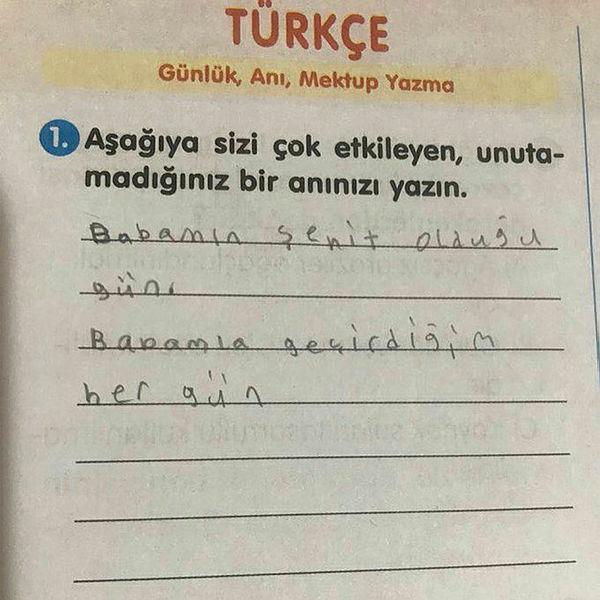 TÜRKÇE
Günlük, Anı, Mektup Yazma
1. Aşağıya sizi çok etkileyen, unuta-
madığınız bir anınızı yazın.
Babamın şehit olduğu
gün.
Babamla geçirdiğim
her gün